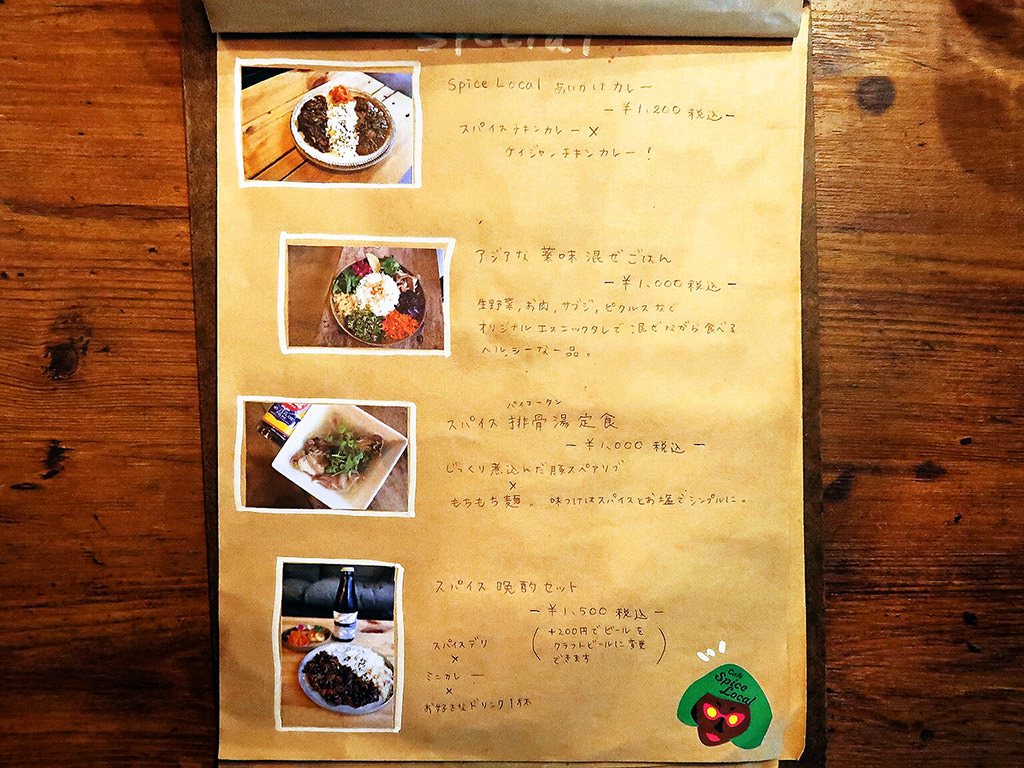 Special
Spice Local あいがけ カレー
ー ¥1,200 税込 ー
スパイス チキンカレー ×
ケイジャンチキンカレー!
アジアな 薬味 混ぜごはん
ー ¥1,000 税込 ー
生野菜, お肉, サブジ, ピクルス など
オリジナル エスニックタレで 混ぜながら 食べる
ヘルシーな一品。
パイコータン
スパイス 排骨湯 定食
ー ¥1,000 税込 ー
じっくり 煮込んだ 豚スペアリブ
×
もちもち 麺。 味つけはスパイスとお塩でシンプルに。
スパイス 晩酌 セット
ー ¥1,500 税込 ー
(+200円で ビールを
クラフトビールに変更
できます)
スパイスデリ
×
ミニカレー
×
お好きなドリンク1杯
Cafe
Spice
Local